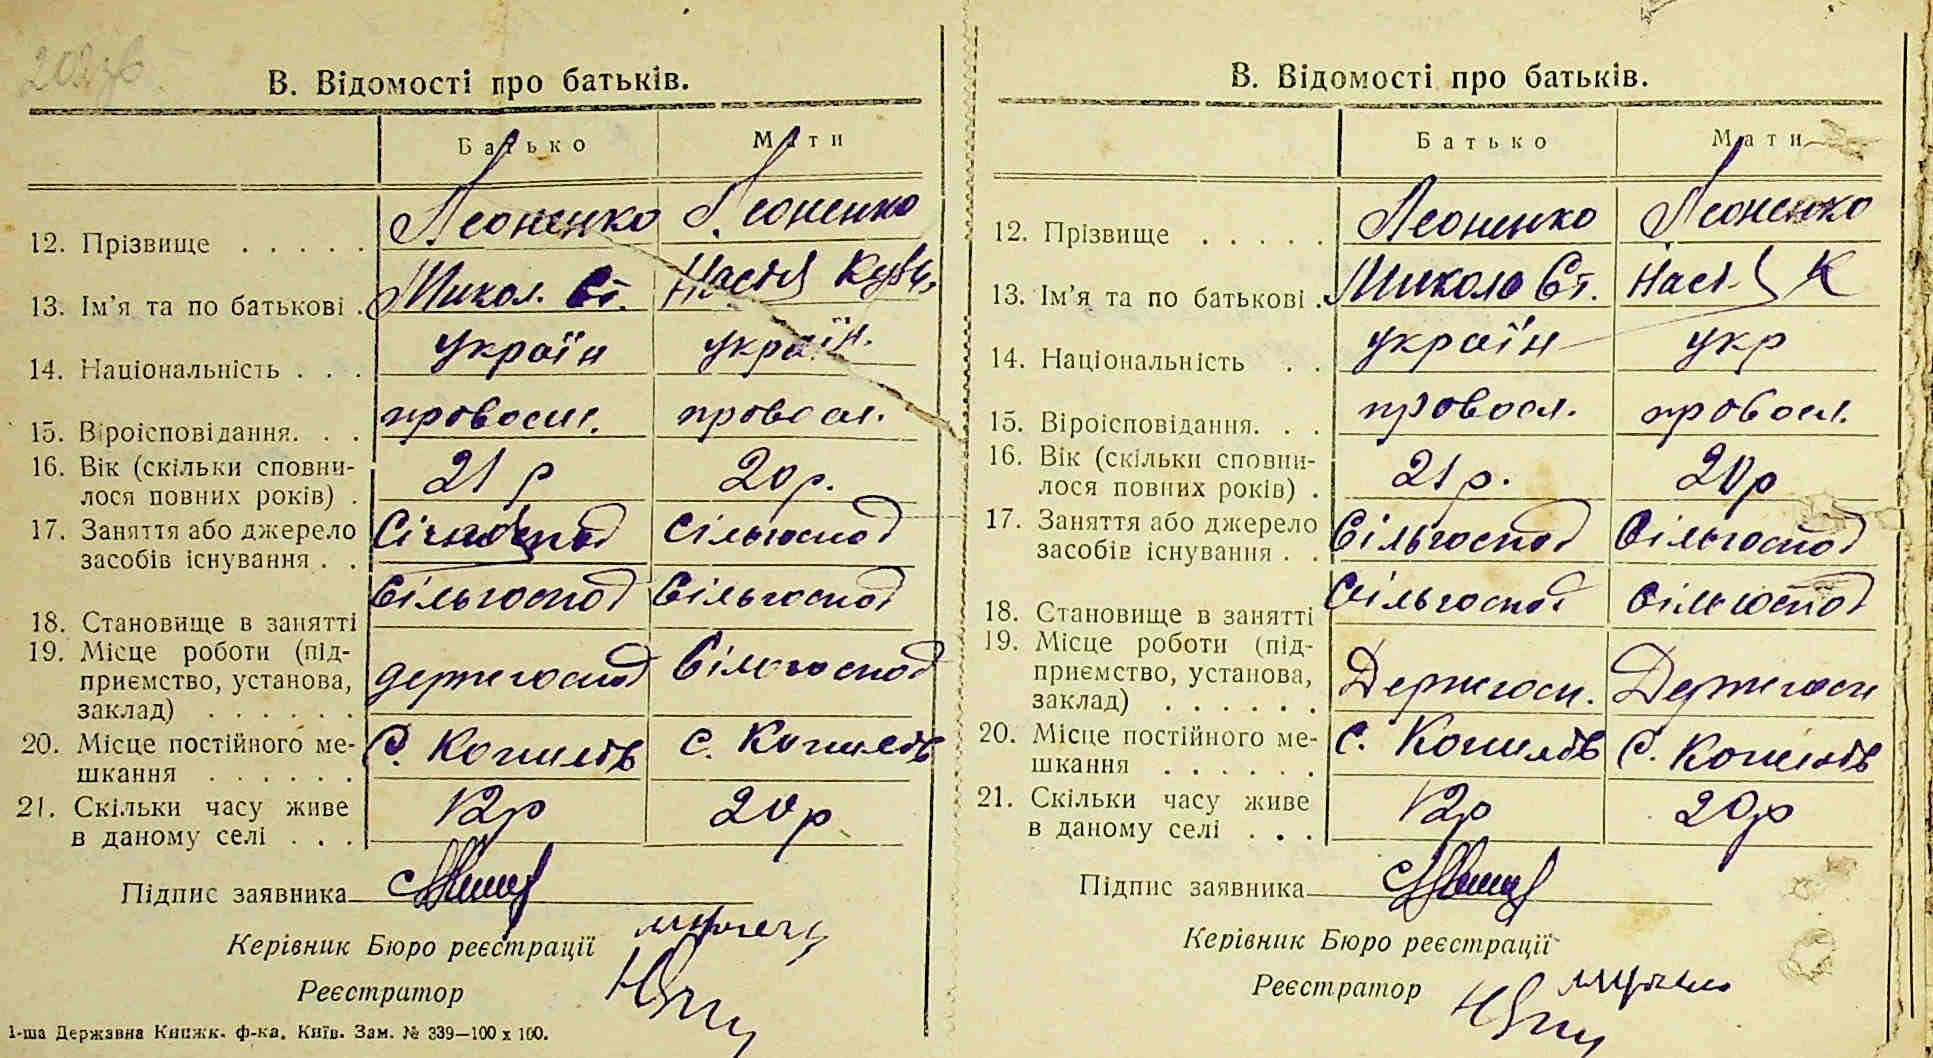 В. Відомості про батьків.
Батько Мати
12. Прізвище . . . . . Леоненко Леоненко
13. Ім'я та по батькові . Микол. Ст. Настя
14. Національність . . . україн україн.
15. Віроісповідання. . . провосл. провосл.
16. Вік (скільки сповни-
лося повних років) . 21 р 20 р.
17. Заняття або джерело
засобів існування . . сільгоспод
18. Становище в занятті сільгоспод сільгоспод
19. Місце роботи (під-
приємство, установа,
заклад) . . . . . . держгоспод сільгоспод
20. Місце постійного ме-
шкання . . . . . . с. Копилов с. Копилов
21. Скільки часу живе
в даному селі . . . 12р 20р
Підпис заявника
Керівник Бюро реєстрації
Реєстратор
1-ша Державна Книжк. ф-ка. Київ. Зам. № 339—100 х 100.
В. Відомості про батьків.
Батько Мати
12. Прізвище . . . . . Леоненко Леоненко
13. Ім'я та по батькові . Микола Ст. Настя К
14. Національність . . україн укр
15. Віроісповідання. . . провосл. провосл.
16. Вік (скільки сповни-
лося повних років) . 21р. 20р
17. Заняття або джерело
засобів існування . . Сільгоспод Сільгоспод
18. Становище в занятті Сільгоспод Сільгоспод
19. Місце роботи (під-
приємство, установа,
заклад) . . . . . . Держгосп. Держгосп
20. Місце постійного ме-
шкання . . . . . . с. Копилов с. Копилов
21. Скільки часу живе
в даному селі . . . 12р 20р
Підпис заявника
Керівник Бюро реєстрації
Реєстратор